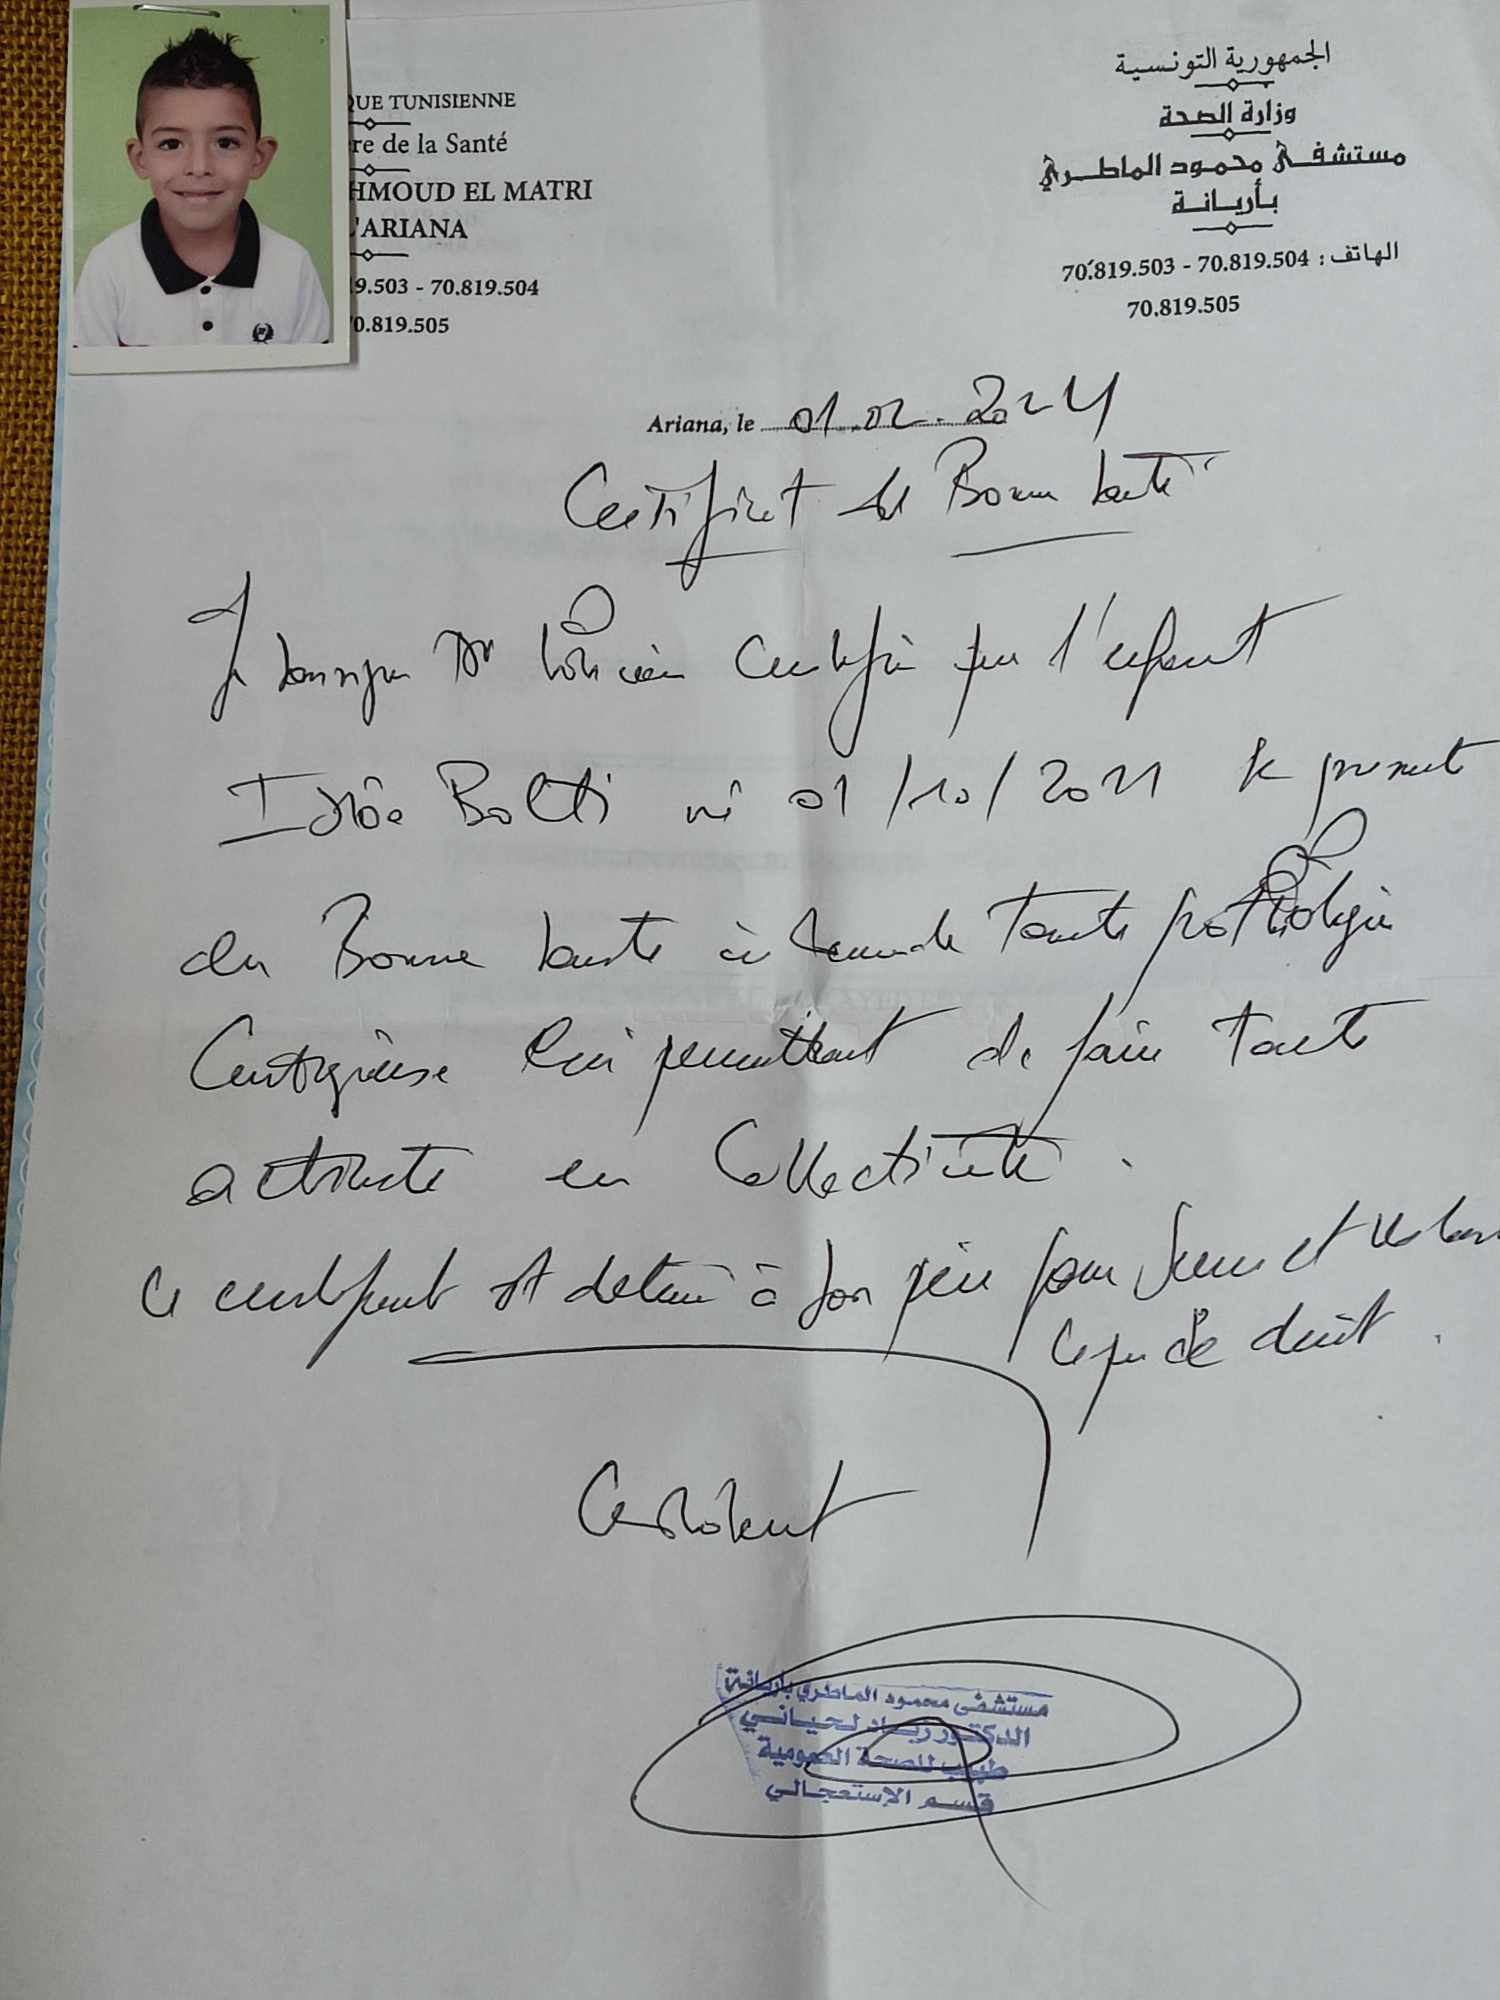 QUE TUNISIENNE
re de la Santé
HMOUD EL MATRI
L'ARIANA
19.503 - 70.819.504
70.819.505
الجمهورية التونسية
وزارة الصحة
مستشفى محمود الماطري
بأريانة
الهاتف : 70.819.504 - 70.819.503
70.819.505
Ariana, le 01.02.2024
Certificat de Bonne santé
Je soussigné Dr certifie que l'enfant
né 01/10/2021 se présente
en Bonne santé toute pathologie
Contagieuse lui permettant de faire toute
activité en Collectivité.
Ce certificat est délivré à son père pour servir et valoir
ce que de droit.
مستشفى محمود الماطري بأريانة
الدكتور زياد لحياني
طبيب للصحة العمومية
قسم الإستعجالي